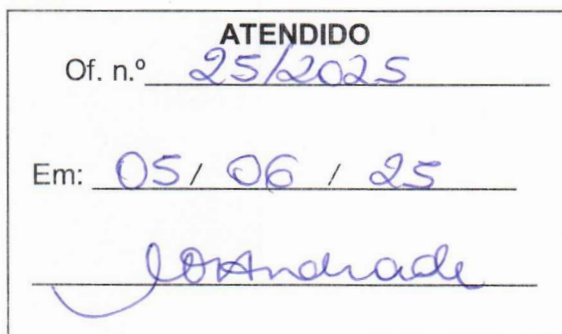 ATENDIDO
Of. n.º 25/2025
Em: 05/ 06 / 25
Andrade